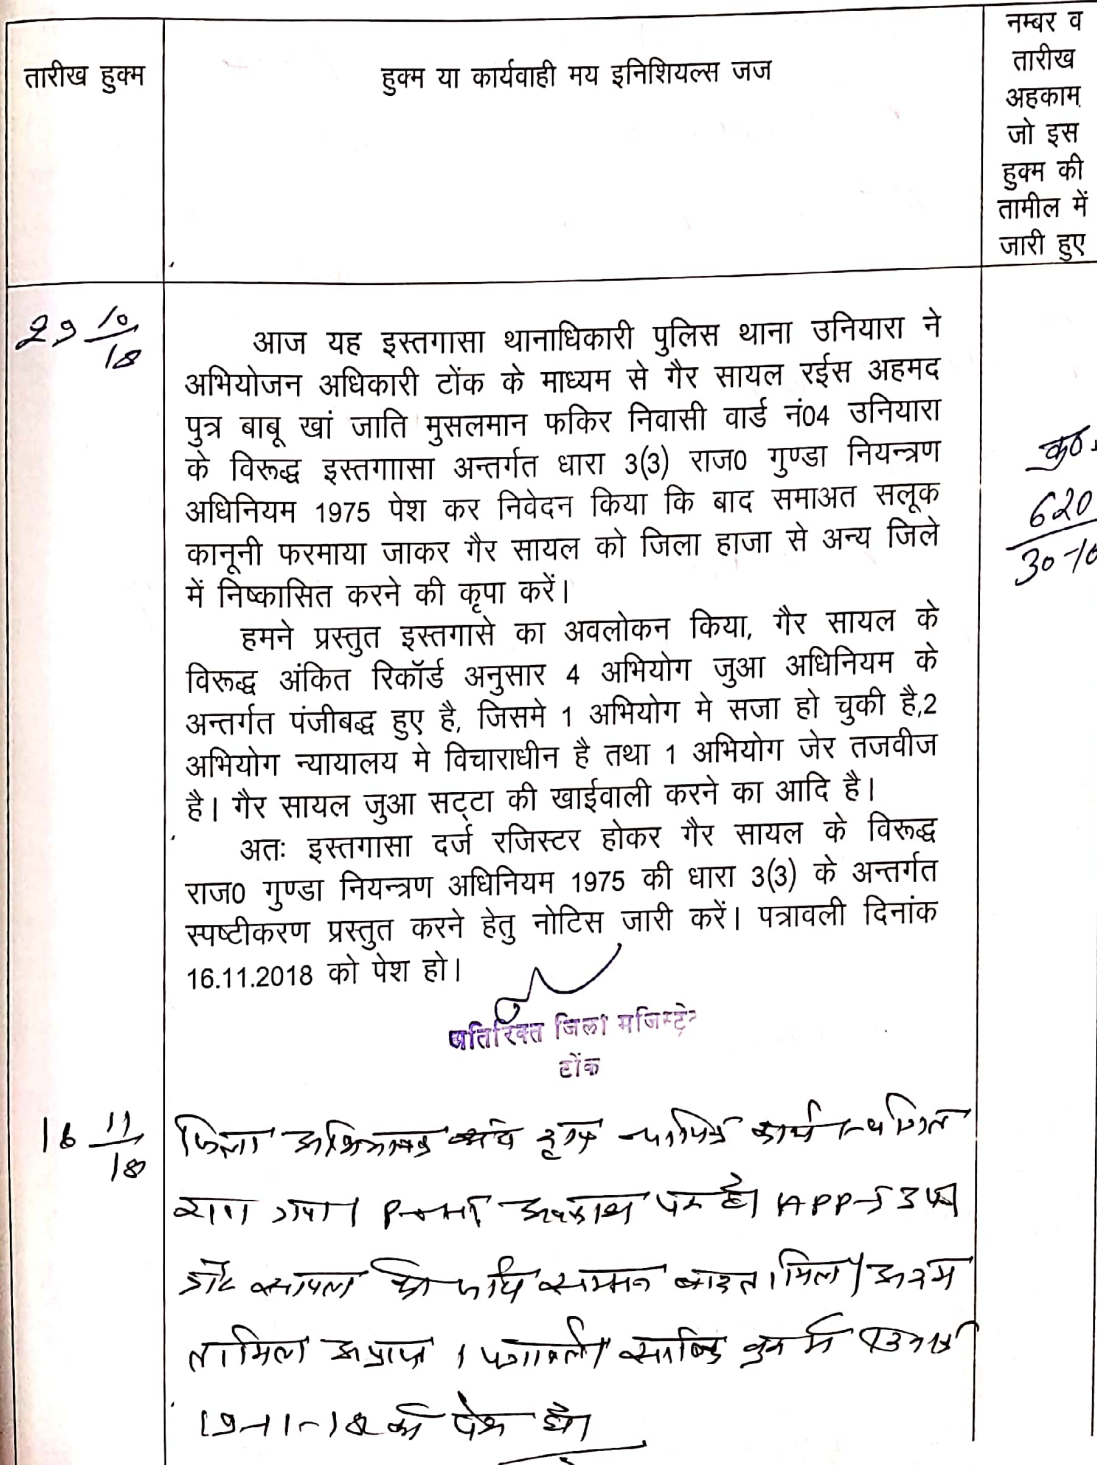 तारीख हुक्म
हुक्म या कार्यवाही मय इनिशियल्स जज
नम्बर व
तारीख
अहकाम
जो इस
हुक्म की
तामील में
जारी हुए
29 10/18
आज यह इस्तगासा थानाधिकारी पुलिस थाना उनियारा ने
अभियोजन अधिकारी टोंक के माध्यम से गैर सायल रईस अहमद
पुत्र बाबू खां जाति मुसलमान फकिर निवासी वार्ड नं04 उनियारा
के विरूद्ध इस्तगाासा अन्तर्गत धारा 3(3) राज0 गुण्डा नियन्त्रण
अधिनियम 1975 पेश कर निवेदन किया कि बाद समाअत सलूक
कानूनी फरमाया जाकर गैर सायल को जिला हाजा से अन्य जिले
में निष्कासित करने की कृपा करें।
620
30-10
हमने प्रस्तुत इस्तगासे का अवलोकन किया, गैर सायल के
विरूद्ध अंकित रिकॉर्ड अनुसार 4 अभियोग जुआ अधिनियम के
अन्तर्गत पंजीबद्ध हुए है, जिसमे 1 अभियोग मे सजा हो चुकी है,2
अभियोग न्यायालय मे विचाराधीन है तथा 1 अभियोग जेर तजवीज
है। गैर सायल जुआ सट्टा की खाईवाली करने का आदि है।
अतः इस्तगासा दर्ज रजिस्टर होकर गैर सायल के विरूद्ध
राज0 गुण्डा नियन्त्रण अधिनियम 1975 की धारा 3(3) के अन्तर्गत
स्पष्टीकरण प्रस्तुत करने हेतु नोटिस जारी करें। पत्रावली दिनांक
16.11.2018 को पेश हो।
अतिरिक्त जिला मजिस्ट्रे
टोंक
16 11/18
जिला अभिभाषक संघ द्वारा न्यायिक कार्य स्थगित
रखा गया। अवकाश पर है। APP-
गैर सायल को जरिये सम्मन बाद तामिल
तामिल अप्राप्त। पत्रावली साबिक हुक्म में
19-11-18 को पेश हो।